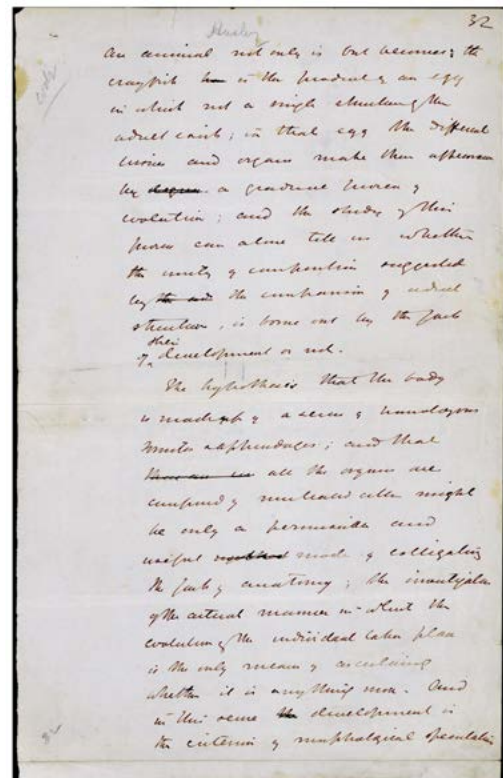 32
Huxley
an animal not only is but becomes; the
crayfish is the product of an egg
in which not a single structure of the
adult exists; in that egg the different
tissues and organs make their appearance
by a gradual process of
evolution; and the study of this
process can alone tell us whether
the unity of composition suggested
by the comparison of adult
structure, is borne out by the facts
of their development or not.
The hypothesis that the body
is made up of a series of homologous
somites & appendages; and that
all the organs are
composed of nucleated cells might
be only a permissible and
useful mode of colligating
the facts of anatomy; the investigation
of the actual manner in which the
evolution of the individual takes place
is the only means of ascertaining
whether it is anything more. And
in this sense development is
the criterion of morphological speculation